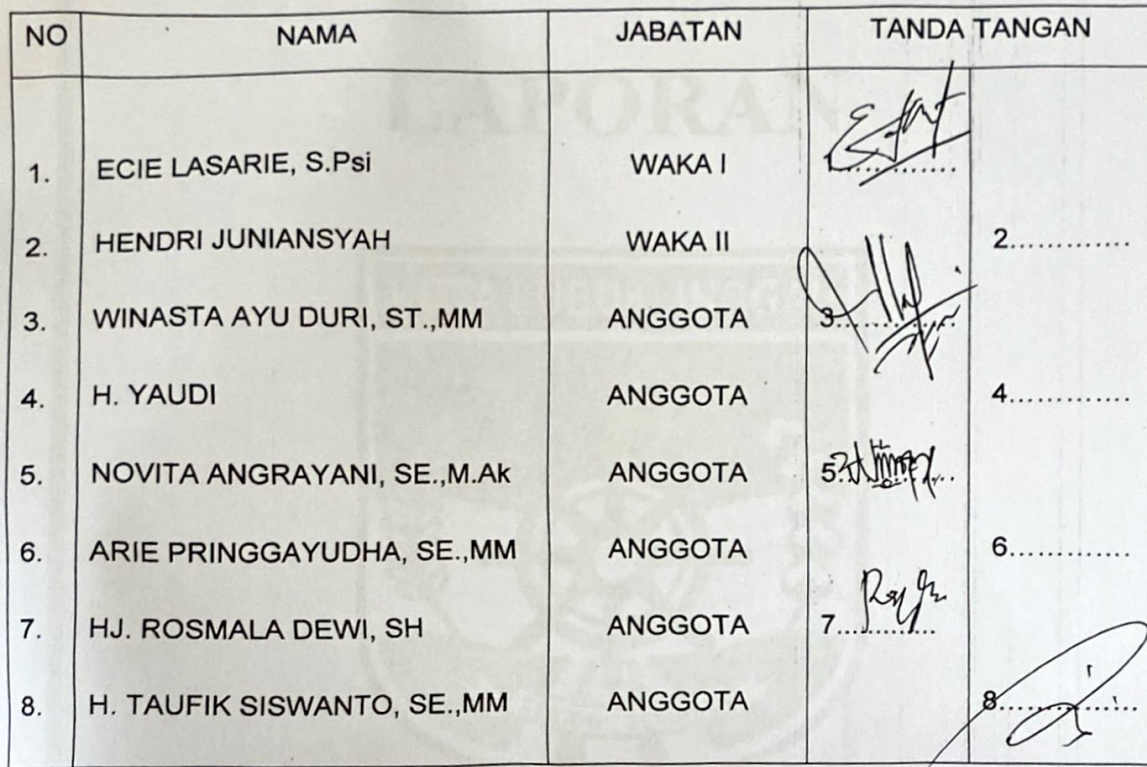 NO NAMA JABATAN TANDA TANGAN
LAPORAN
1. ECIE LASARIE, S.Psi WAKA I
2. HENDRI JUNIANSYAH WAKA II 2.............
3. WINASTA AYU DURI, ST.,MM ANGGOTA 3.............
4. H. YAUDI ANGGOTA 4.............
5. NOVITA ANGRAYANI, SE.,M.Ak ANGGOTA 5.............
6. ARIE PRINGGAYUDHA, SE.,MM ANGGOTA 6.............
7. HJ. ROSMALA DEWI, SH ANGGOTA 7.............
8. H. TAUFIK SISWANTO, SE.,MM ANGGOTA 8.............